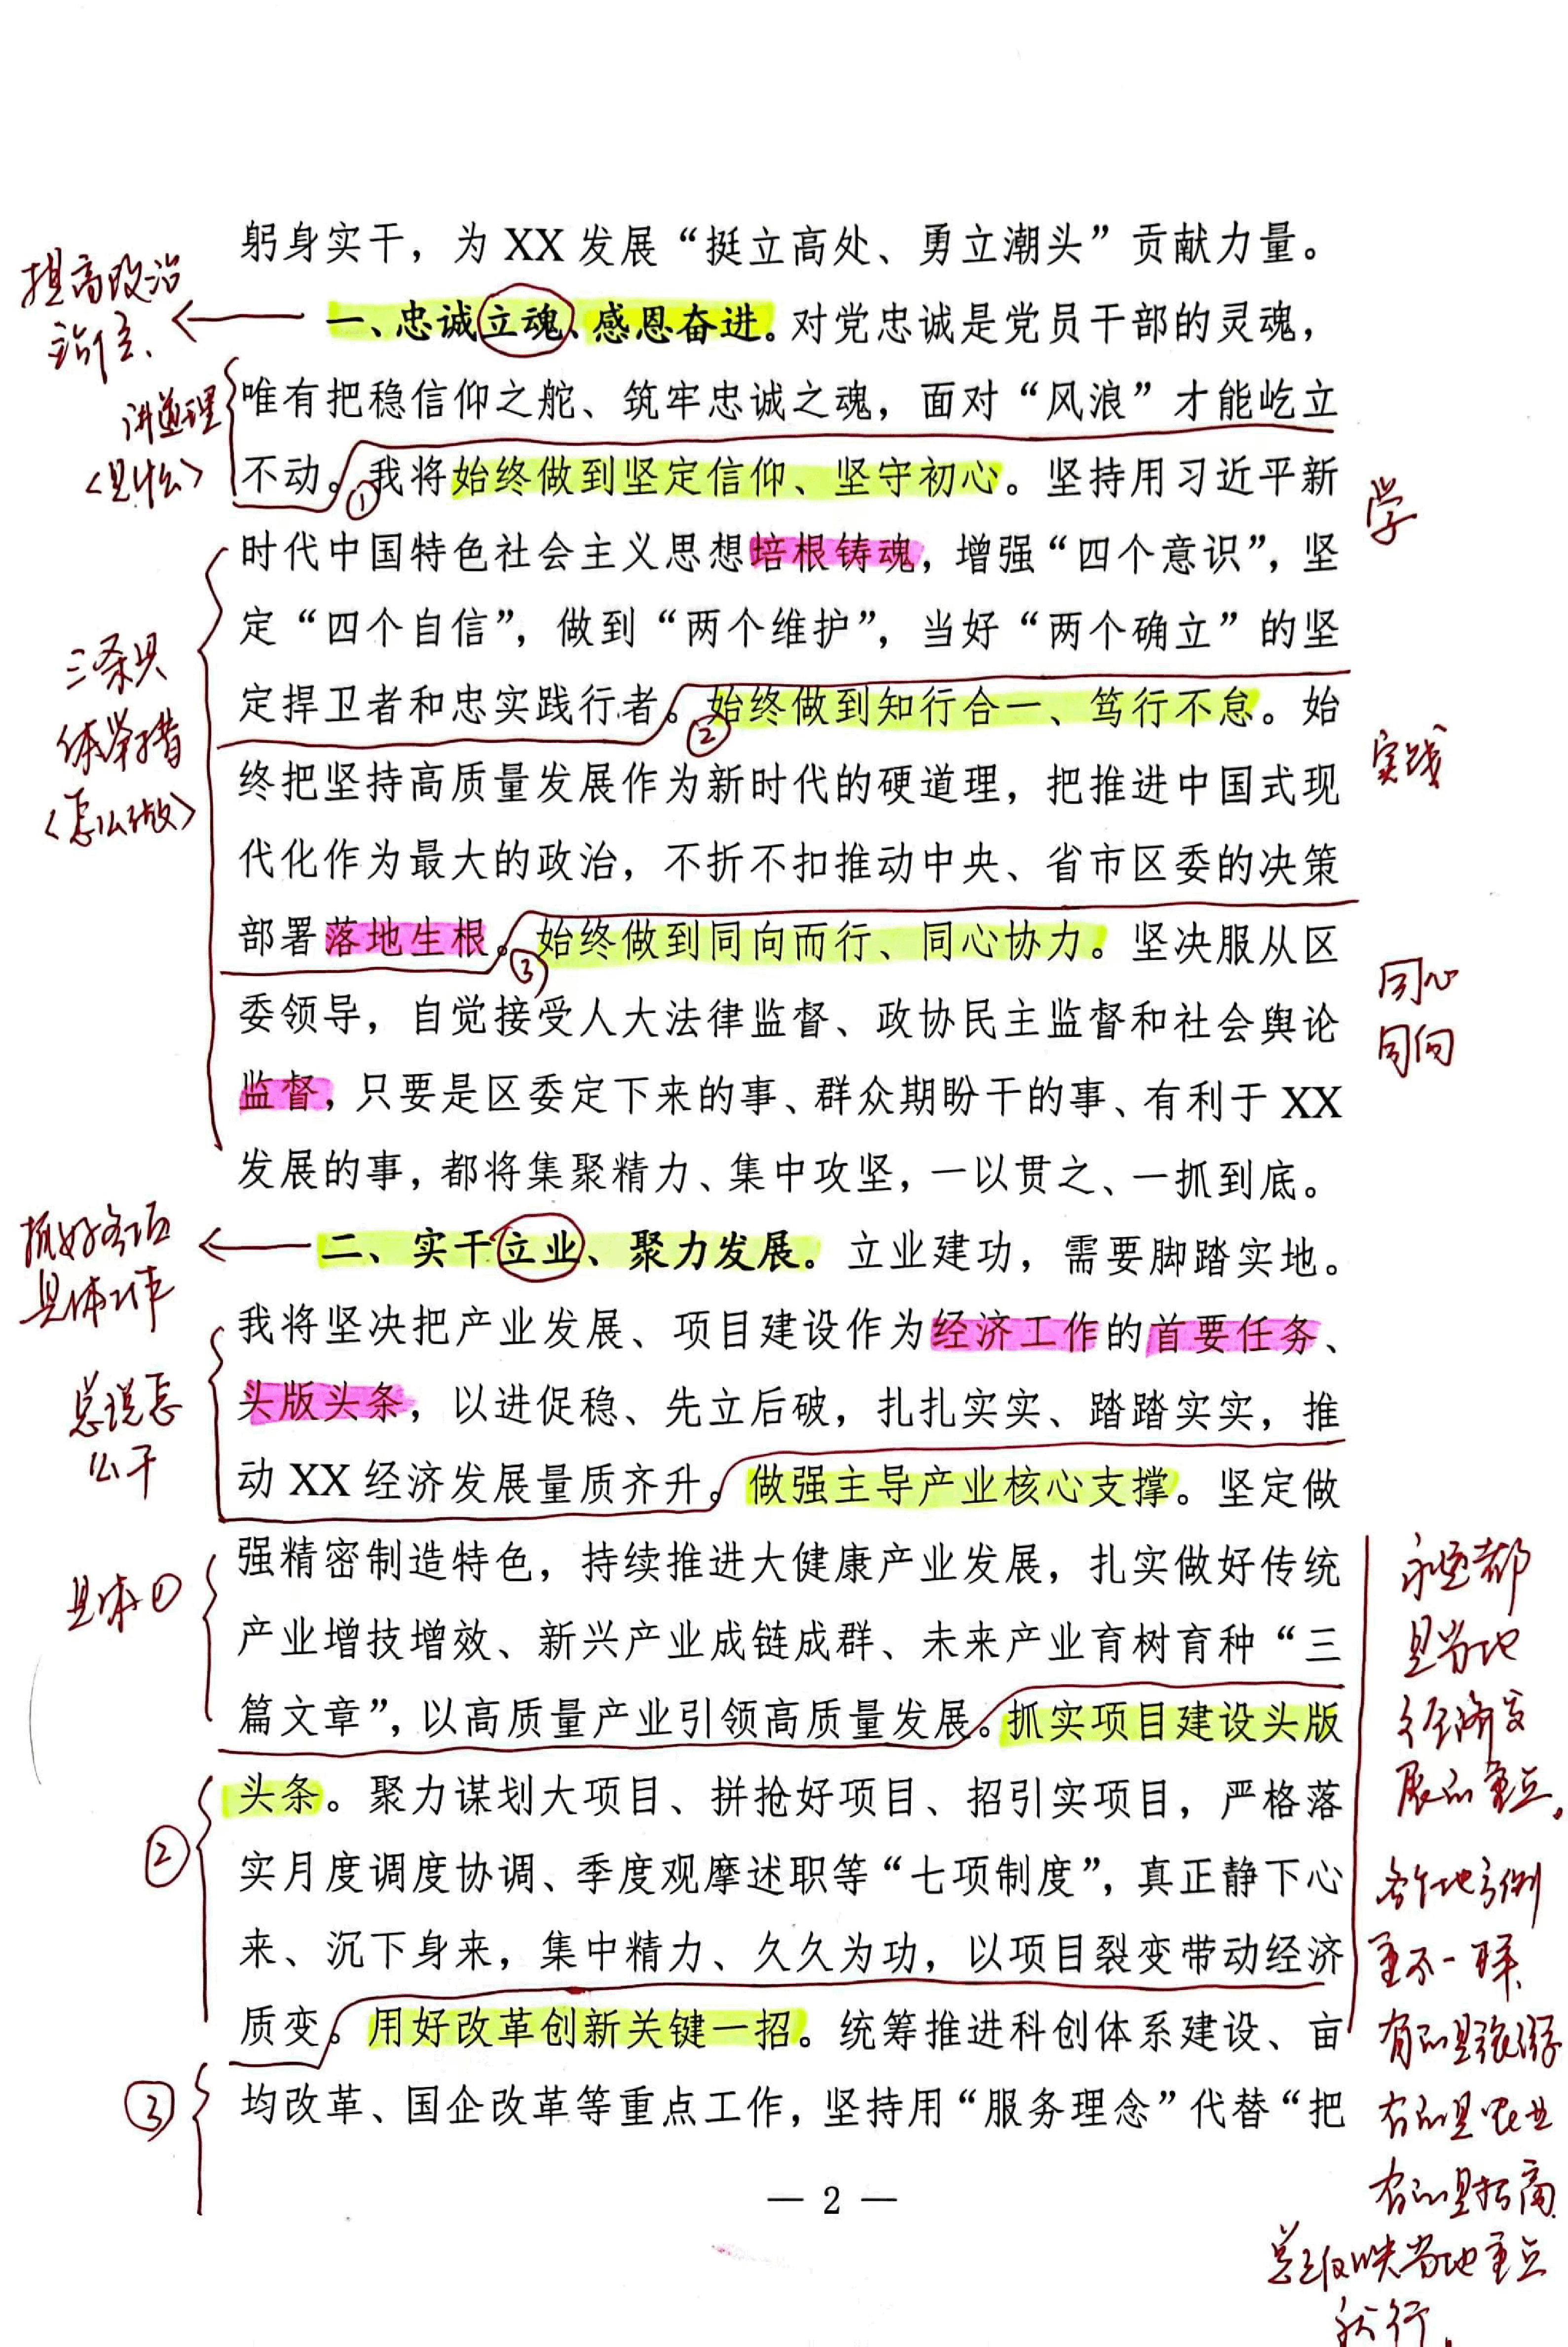 躬身实干，为 XX 发展“挺立高处、勇立潮头”贡献力量。
提高政治
站位、
一、忠诚立魂、感恩奋进。对党忠诚是党员干部的灵魂，
讲道理
<是什么>
唯有把稳信仰之舵、筑牢忠诚之魂，面对“风浪”才能屹立
不动。①我将始终做到坚定信仰、坚守初心。坚持用习近平新
学
时代中国特色社会主义思想培根铸魂，增强“四个意识”，坚
定“四个自信”，做到“两个维护”，当好“两个确立”的坚
三条具
体举措
<怎么做>
定捍卫者和忠实践行者。②始终做到知行合一、笃行不怠。始
实践
终把坚持高质量发展作为新时代的硬道理，把推进中国式现
代化作为最大的政治，不折不扣推动中央、省市区委的决策
部署落地生根。③始终做到同向而行、同心协力。坚决服从区
同心
同向
委领导，自觉接受人大法律监督、政协民主监督和社会舆论
监督，只要是区委定下来的事、群众期盼干的事、有利于 XX
发展的事，都将集聚精力、集中攻坚，一以贯之、一抓到底。
抓好各项
具体工作
二、实干立业、聚力发展。立业建功，需要脚踏实地。
我将坚决把产业发展、项目建设作为经济工作的首要任务、
总说怎
么干
头版头条，以进促稳、先立后破，扎扎实实、踏踏实实，推
动 XX 经济发展量质齐升。做强主导产业核心支撑。坚定做
具体①
强精密制造特色，持续推进大健康产业发展，扎实做好传统
产业增技增效、新兴产业成链成群、未来产业育树育种“三
篇文章”，以高质量产业引领高质量发展。抓实项目建设头版
永远都
是当地
经济发
展的重点。
②
头条。聚力谋划大项目、拼抢好项目、招引实项目，严格落
实月度调度协调、季度观摩述职等“七项制度”，真正静下心
来、沉下身来，集中精力、久久为功，以项目裂变带动经济
质变。用好改革创新关键一招。统筹推进科创体系建设、亩
③
均改革、国企改革等重点工作，坚持用“服务理念”代替“把
各个地方侧
重不一样、
有的是旅游
有的是农业
有的是招商
总之反映当地重点
就行。
— 2 —